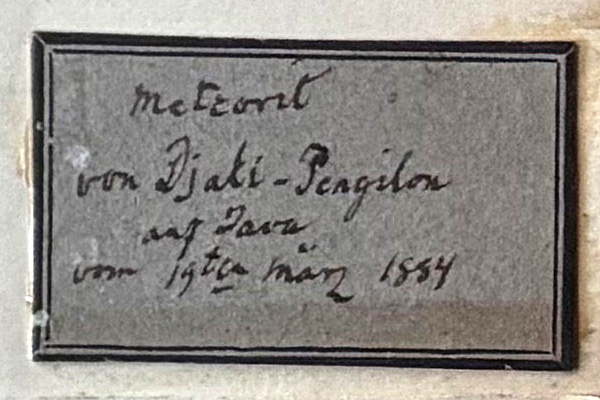 Meteorit
von Djati-Pengilon
auf Java
vom 19ten März 1884